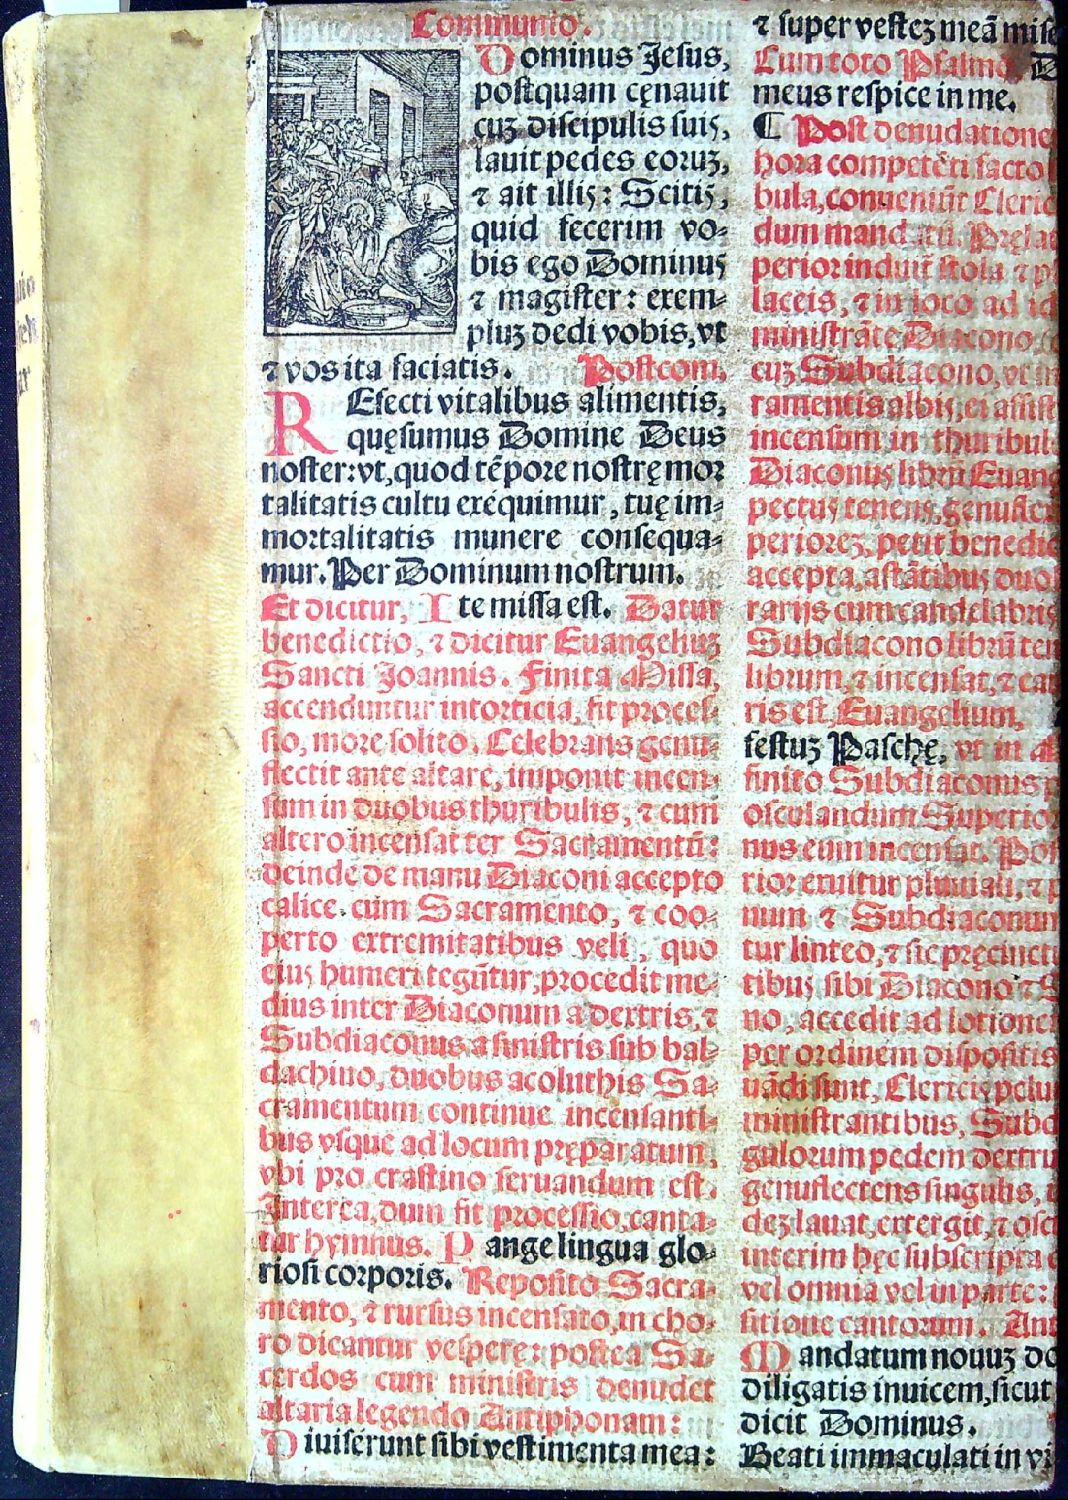 Communio.
Dominus Jesus,
postquam cęnauit
cuz discipulis suis,
lauit pedes eoruz,
⁊ ait illis: Scitis,
quid fecerim vo-
bis ego Dominus
⁊ magister: exem-
pluz dedi vobis, vt
⁊ vos ita faciatis. Postcom.
REfecti vitalibus alimentis,
quęsumus Domine Deus
noster: vt, quod tẽpore nostrę mor
talitatis cultu exéquimur, tuę im-
mortalitatis munere consequa-
mur. Per Dominum nostrum.
Et dicitur, Ite missa est. Datur
benedictio, ⁊ dicitur Euangeliuz
Sancti Joannis. Finita Missa,
accenduntur intorticia, fit proces-
sio, more solito. Celebrans genu-
flectit ante altare, imponit incen-
sum in duobus thuribulis, ⁊ cum
altero incensat ter Sacramentũ:
deinde de manu Diaconi accepto
calice cum Sacramento, ⁊ coo-
perto extremitatibus veli, quo
eius humeri tegũtur, procedit me-
dius inter Diaconum a dextris, ⁊
Subdiaconus a sinistris sub bal-
dachino, duobus acoluthis Sa-
cramentum continue incensanti-
bus vsque ad locum pręparatum,
vbi pro crastino seruandum est.
Interea, dum fit processio, canta-
tur hymnus. Pange lingua glo-
riosi corporis. Reposito Sacra-
mento, ⁊ rursus incensato, in cho-
ro dicantur vesperę: postea Sa-
cerdos cum ministris denudet
altaria legendo Antiphonam:
Diuiserunt sibi vestimenta mea:
⁊ super vestez meã mise
Cum toto Psalmo, D
meus respice in me.
¶ Post denudatione
hora competẽti facto
bula, conueniũt Cleric
dum mandatũ. Pręlat
perior induit stola ⁊ pl
laceis, ⁊ in loco ad id
ministrãte Diacono,
cuz Subdiacono, vt in
ramentis albis, ei assist
incensum in thuribul
Diaconus librũ Euang
pectus tenens, genuflex
periorez, petit benedic
accepta, astãtibus duo
rarijs cum candelabris
Subdiacono librũ ten
librum, ⁊ incensat, ⁊ can
ris est, Euangelium,
festuz Paschę, vt in
finito Subdiaconus
osculandum Superio
nus eum incensat. Post
rior exuitur pluuiali, ⁊ p
num ⁊ Subdiaconum
tur linteo, ⁊ sic pręcinct
tibus sibi Diacono ⁊ S
no, accedit ad lotione
per ordinem dispositis
uãdi sunt, Clericis pelui
ministrantibus, Subd
gulorum pedem dextru
genuflectens singulis,
dez lauat, extergit, ⁊ osc
interim hęc subscripta
vel omnia vel in parte:
sitione cantorum. Ant
Mandatum nouuz do
diligatis inuicem, sicut
dicit Dominus.
Beati immaculati in vi